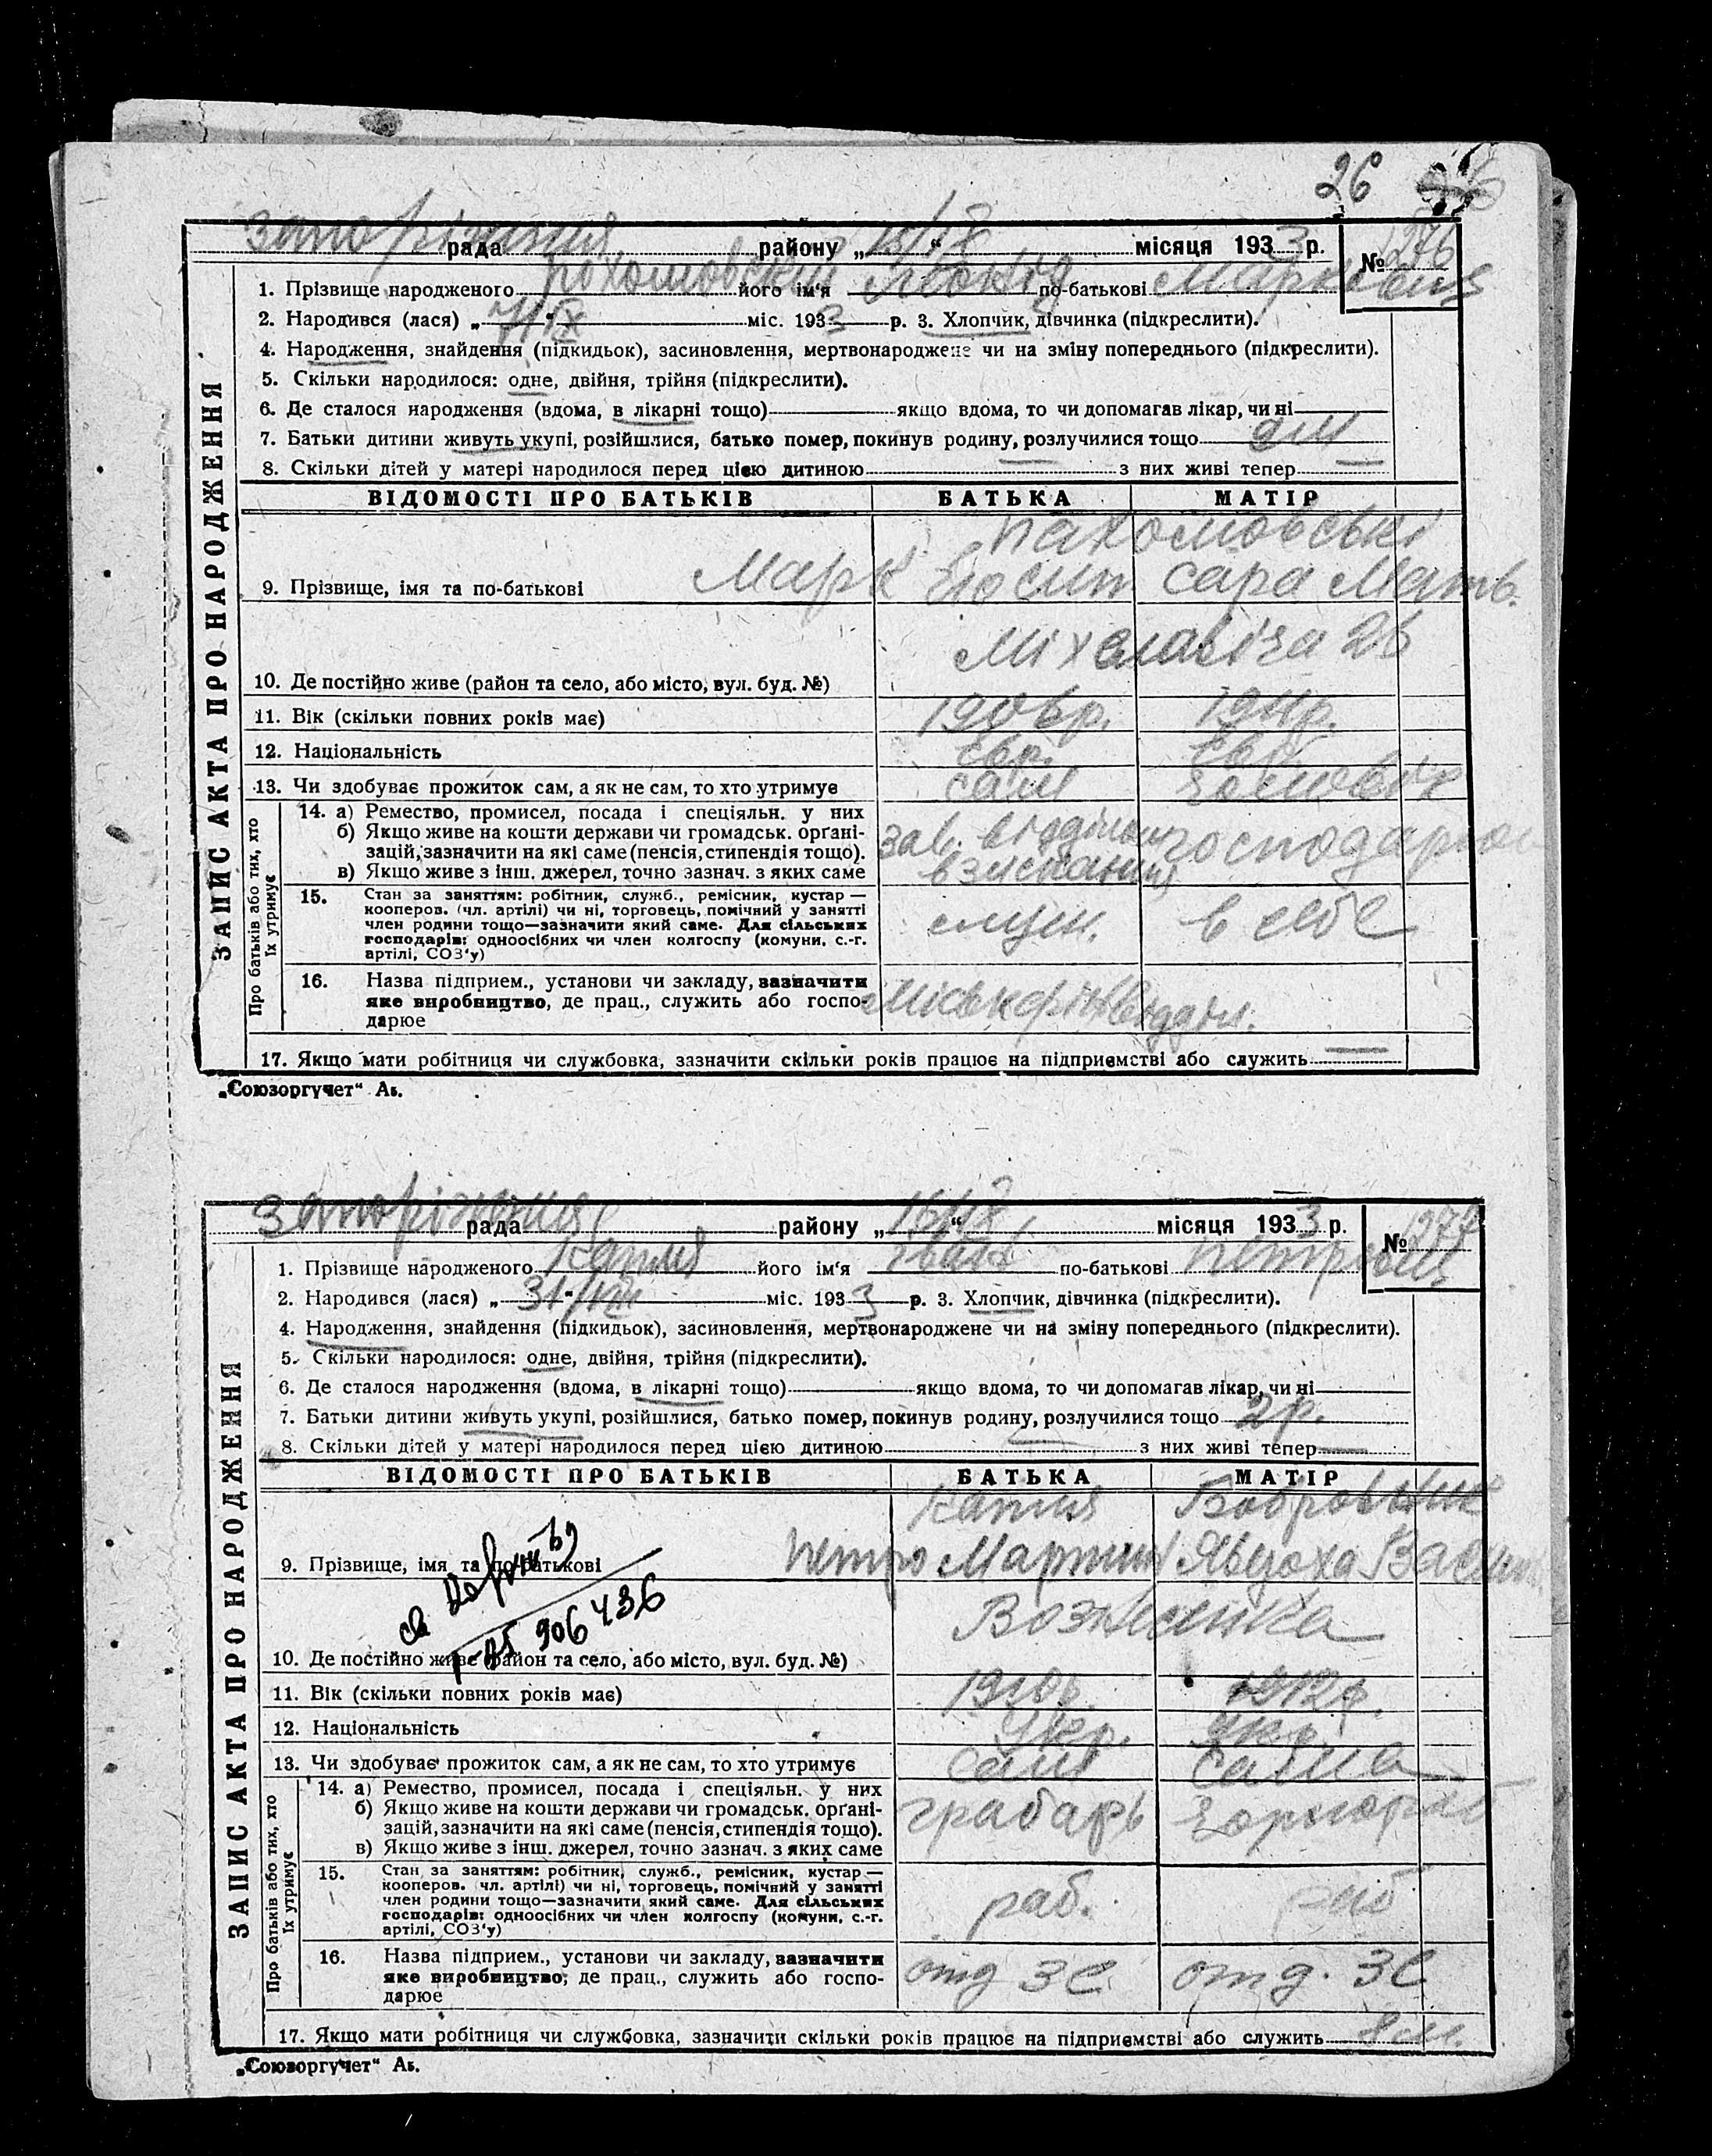 26
Запоріжжя рада району „15/IX“ місяця 1933 р. № 1276
1. Прізвище народженого Похомовский його ім‘я Леонід по-батькові Маркович
2. Народився (лася) „7/IX“ міс. 1933 р. 3. Хлопчик, дівчинка (підкреслити).
4. Народження, знайдення (підкидьок), засиновлення, мертвонароджене чи на зміну попереднього (підкреслити).
5. Скільки народилося: одне, двійня, трійня (підкреслити).
6. Де сталося народження (вдома, в лікарні тощо) якщо вдома, то чи допомагав лікар, чи ні
7. Батьки дитини живуть укупі, розійшлися, батько помер, покинув родину, розлучилися тощо
8. Скільки дітей у матері народилося перед цією дитиною — з них живі тепер —
ЗАПИС АКТА ПРО НАРОДЖЕННЯ
ВІДОМОСТІ ПРО БАТЬКІВ БАТЬКА МАТІР
Пахомовські
9. Прізвище, імя та по-батькові Марк Йосип Сара Матв.
10. Де постійно живе (район та село, або місто, вул. буд. №) 26
11. Вік (скільки повних років має) 1906р. 1911р.
12. Національність Євр. Євр.
13. Чи здобуває прожиток сам, а як не сам, то хто утримує сам чоловік
Про батьків або тих, хто їх утримує
14. а) Ремество, промисел, посада і спеціяльн. у них
б) Якщо живе на кошти держави чи громадськ. орґані-
зацій, зазначити на які саме (пенсія, стипендія тощо). зав. відділом господарює
в) Якщо живе з інш. джерел, точно зазнач. з яких саме взискання
15. Стан за заняттям: робітник, служб., ремісник, кустар —
кооперов. (чл. артілі) чи ні, торговець, помічний у занятті
член родини тощо—зазначити який саме. Для сільських служ. в себе
господарів: одноосібних чи член колгоспу (комуни, с.-г.
артілі, СОЗ‘у)
16. Назва підприєм., установи чи закладу, зазначити
яке виробництво, де прац., служить або госпо- Міськфінвідділ.
дарює
17. Якщо мати робітниця чи службовка, зазначити скільки років працює на підприємстві або служить —
„Союзоргучет“ Аь.
Запоріжжя рада району „16/IX“ місяця 1933 р. № 1277
1. Прізвище народженого Капля його ім‘я Іван по-батькові Петрович
2. Народився (лася) „31/VIII“ міс. 1933 р. 3. Хлопчик, дівчинка (підкреслити).
4. Народження, знайдення (підкидьок), засиновлення, мертвонароджене чи на зміну попереднього (підкреслити).
5. Скільки народилося: одне, двійня, трійня (підкреслити).
6. Де сталося народження (вдома, в лікарні тощо) якщо вдома, то чи допомагав лікар, чи ні
7. Батьки дитини живуть укупі, розійшлися, батько помер, покинув родину, розлучилися тощо 2р.
8. Скільки дітей у матері народилося перед цією дитиною — з них живі тепер —
ЗАПИС АКТА ПРО НАРОДЖЕННЯ
ВІДОМОСТІ ПРО БАТЬКІВ БАТЬКА МАТІР
Капля Бобровник
9. Прізвище, імя та по-батькові Петро Мартин Явдоха Василь
906436
Вознесенка
10. Де постійно живе (район та село, або місто, вул. буд. №)
11. Вік (скільки повних років має) 1910р. 1912р.
12. Національність Укр. Укр.
13. Чи здобуває прожиток сам, а як не сам, то хто утримує сам сама
Про батьків або тих, хто їх утримує
14. а) Ремество, промисел, посада і спеціяльн. у них
б) Якщо живе на кошти держави чи громадськ. орґані- грабарь чорнороб
зацій, зазначити на які саме (пенсія, стипендія тощо).
в) Якщо живе з інш. джерел, точно зазнач. з яких саме
15. Стан за заняттям: робітник, служб., ремісник, кустар —
кооперов. чл. артілі) чи ні, торговець, помічний у занятті
член родини тощо—зазначити який саме. Для сільських раб. раб
господарів: одноосібних чи член колгоспу (комуни, с.-г.
артілі, СОЗ‘у)
16. Назва підприєм., установи чи закладу, зазначити
яке виробництво, де прац., служить або госпо- отд ЗС отд. ЗС
дарює
17. Якщо мати робітниця чи службовка, зазначити скільки років працює на підприємстві або служить 8 м.
„Союзоргучет“ Аь.